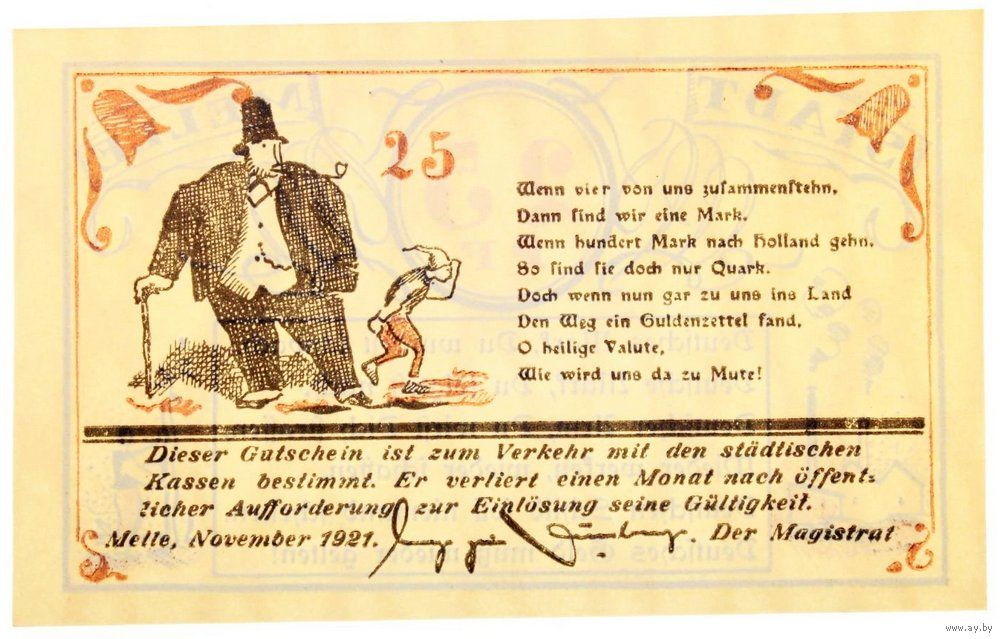 25
Wenn vier von uns zusammenstehn,
Dann sind wir eine Mark.
Wenn hundert Mark nach Holland gehn,
So sind sie doch nur Quark.
Doch wenn nun gar zu uns ins Land
Den Weg ein Guldenzettel fand,
O heilige Valute,
Wie wird uns da zu Mute!
Dieser Gutschein ist zum Verkehr mit den städtischen
Kassen bestimmt. Er verliert einen Monat nach öffent-
licher Aufforderung zur Einlösung seine Gültigkeit.
Melle, November 1921. Der Magistrat
www.ay.by